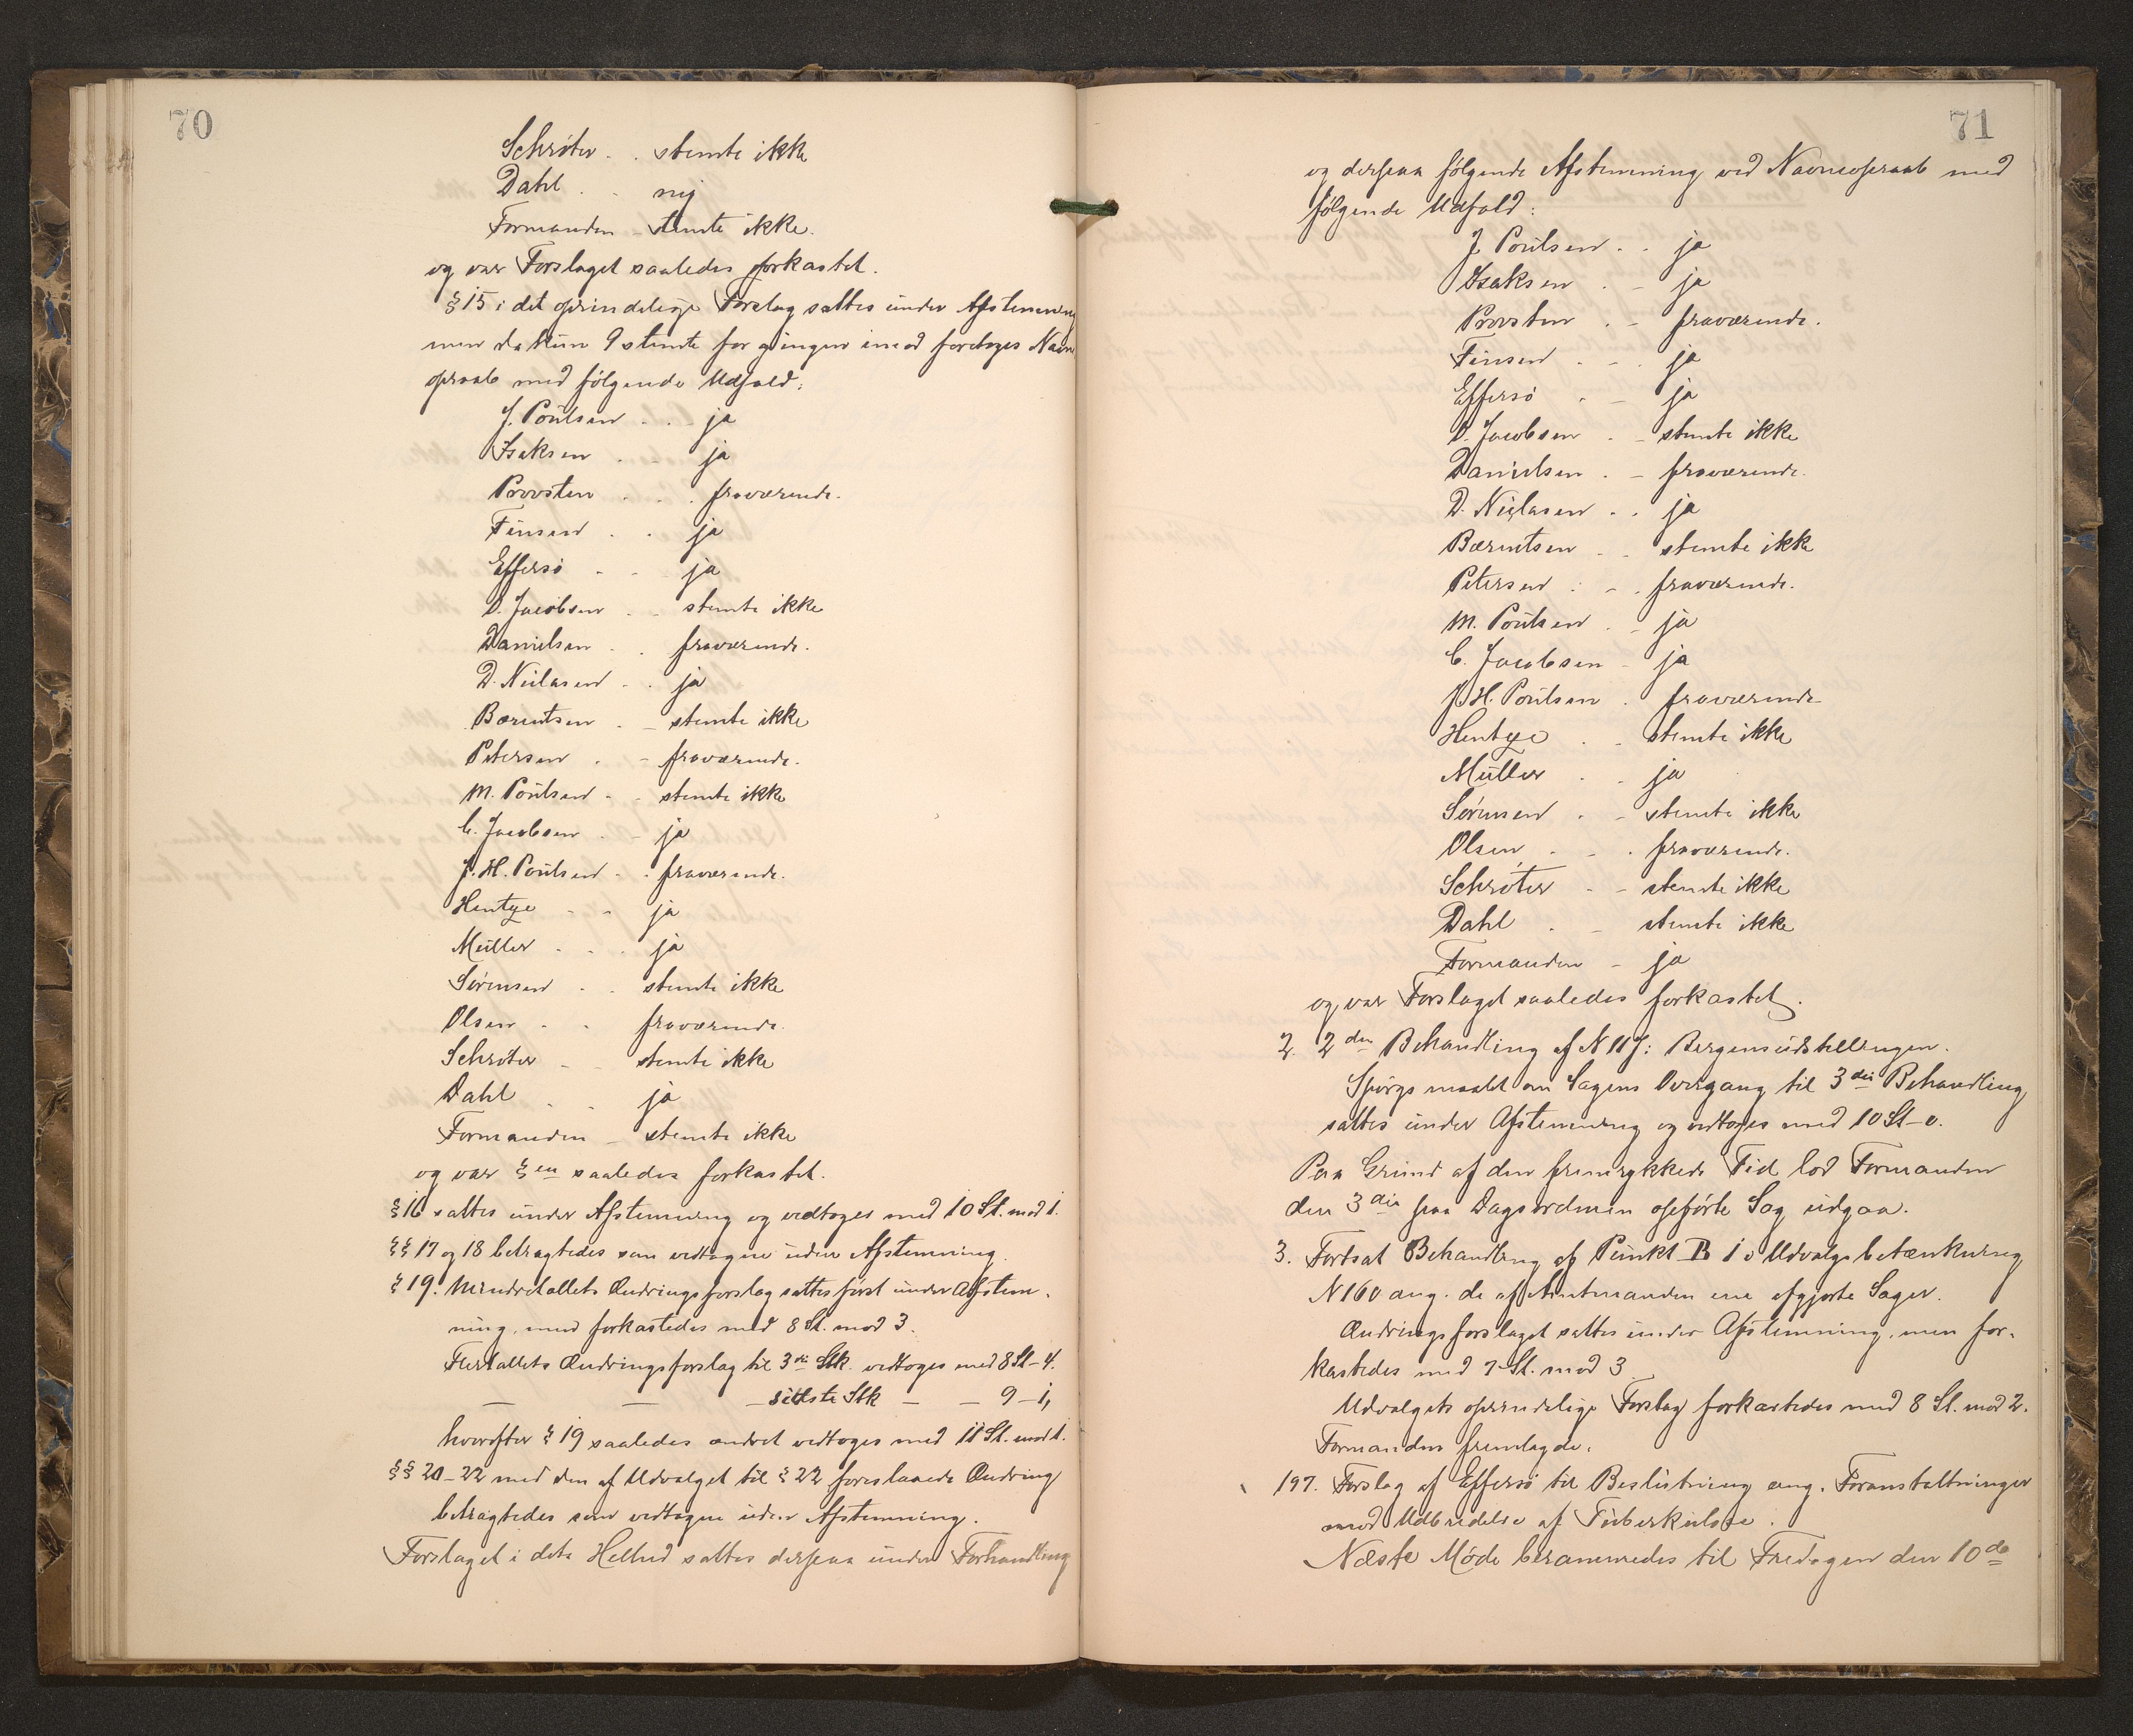 70
Schröter . . stemte ikke
Dahl . . nej
Formanden - stemte ikke.
og var Forslaget saaledes forkastet.
§ 15 i det oprindelige Forslag sattes under Afstemning
men da kun 9 stemte for og ingen imod foretoges Navne
opraab med følgende Udfald:
J. Poulsen . . ja
Isaksen . - ja
Provsten . . . fraværende.
Finsen . . ja
Effersö - - ja
O. Jacobsen . - stemte ikke
Danielsen . . fraværende.
D. Niclasen . . ja
Bærentsen . - stemte ikke
Petersen . - fraværende.
M. Poulsen - - stemte ikke
C. Jacobsen . - ja
J. H. Poulsen - . fraværende.
Hentze - - ja
Müller . . . ja
Sørensen . . stemte ikke
Olsen . . fraværende.
Schröter - stemte ikke
Dahl . . ja
Formanden - stemte ikke
og var §en saaledes forkastet.
§ 16 sattes under Afstemning og vedtoges med 10 St. mod 1.
§§ 17 og 18 betragtedes som vedtagne uden Afstemning.
§ 19. Mindretallets Ændringsforslag sattes først under Afstem-
ning, men forkastedes med 8 St. mod 3.
Flertallets Ændringsforslag til 3die Stk. vedtoges med 8 St - 4.
— — — sidste Stk — — 9 - 1,
hvorefter § 19 saaledes ændret vedtoges med 11 St. mod 1.
§§ 20-22 med den af Udvalget til § 22 foreslaaede Ændring
betragtedes som vedtagne uden Afstemning.
Forslaget i dets Helhed sattes derpaa under Forhandling
71
og derpaa følgende Afstemning ved Navneopraab med
følgende Udfald:
J. Poulsen . . ja
Isaksen . - ja
Provsten . - fraværende.
Finsen - - . ja
Effersö . - ja
O. Jacobsen . - stemte ikke
Danielsen . - fraværende.
D. Niclasen . . ja
Bærentsen . . stemte ikke
Petersen . - . fraværende.
M. Poulsen . - ja
C. Jacobsen - ja
J. H. Poulsen . fraværende
Hentze . . stemte ikke
Müller . . ja
Sørensen . - stemte ikke
Olsen . - . fraværende.
Schröter - - stemte ikke
Dahl . - stemte ikke
Formanden - ja
og var Forslaget saaledes forkastet.
2. 2den Behandling af N 117: Bergensudstillingen.
Spørgsmaalet om Sagens Overgang til 3die Behandling
sattes under Afstemning og vedtoges med 10 St - 0.
Paa Grund af den fremrykkede Tid lod Formanden
den 3die paa Dagsordenen opførte Sag udgaa.
3. Fortsat Behandling af Punkt B 1 i Udvalgsbetænkning
N 160 ang. de af Amtmanden ene afgjorte Sager.
Ændringsforslaget sattes under Afstemning, men for-
kastedes med 7 St. mod 3.
Udvalgets oprindelige Forslag forkastedes med 8 St. mod 2.
Formanden fremlagde:
197. Forslag af Effersö til Beslutning ang. Foranstaltninger
mod Udbredelse af Tuberkulose.
Næste Møde berammedes til Fredagen den 10de